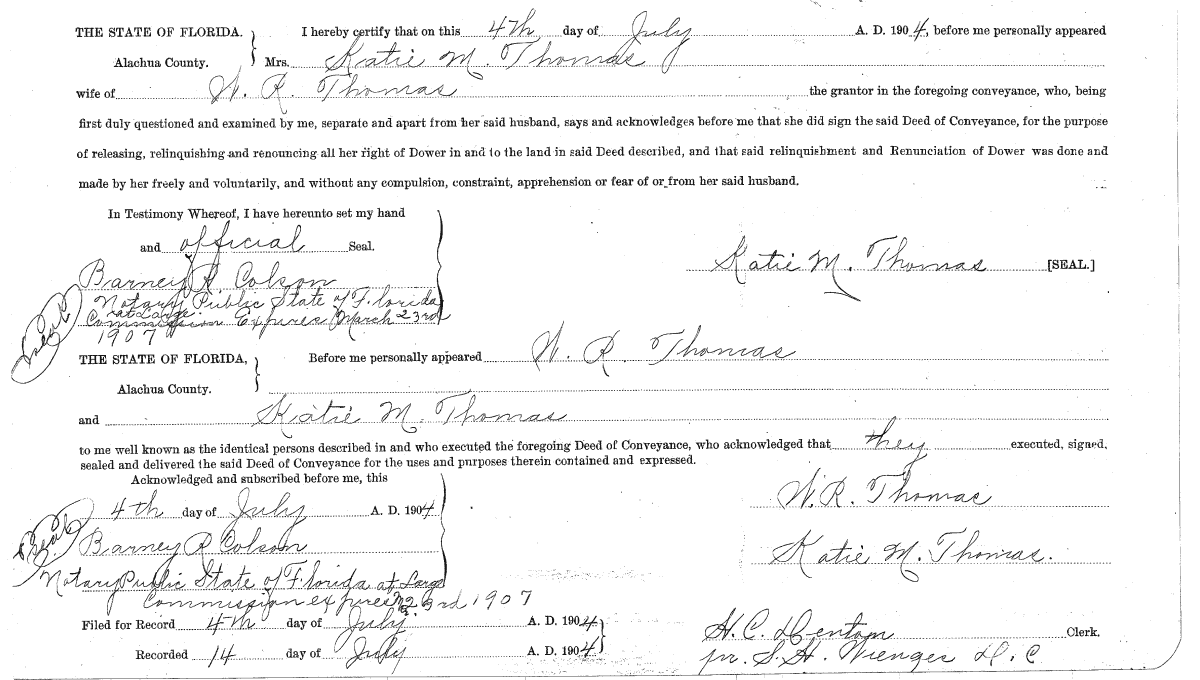 THE STATE OF FLORIDA. I hereby certify that on this 4th day of July A. D. 1904, before me personally appeared
Alachua County. Mrs. Katie M. Thomas
wife of W. R. Thomas the grantor in the foregoing conveyance, who, being
first duly questioned and examined by me, separate and apart from her said husband, says and acknowledges before me that she did sign the said Deed of Conveyance, for the purpose
of releasing, relinquishing and renouncing all her right of Dower in and to the land in said Deed described, and that said relinquishment and Renunciation of Dower was done and
made by her freely and voluntarily, and without any compulsion, constraint, apprehension or fear of or from her said husband.
In Testimony Whereof, I have hereunto set my hand
and official Seal.
Katie M. Thomas [SEAL.]
Barney R Colson
Notary Public State of Florida
at Large.
Commission Expires March 23rd
1907
Seal
THE STATE OF FLORIDA, Before me personally appeared W. R. Thomas
Alachua County.
and Katie M. Thomas
to me well known as the identical persons described in and who executed the foregoing Deed of Conveyance, who acknowledged that they executed, signed,
sealed and delivered the said Deed of Conveyance for the uses and purposes therein contained and expressed.
Acknowledged and subscribed before me, this
W. R. Thomas
4th day of July A. D. 1904
Seal
Barney R Colson
Katie M. Thomas.
Notary Public State of Florida at Large
Commission expires 23rd 1907
Filed for Record 4th day of July A. D. 1904
H. C. Denton Clerk.
Recorded 14 day of July A. D. 1904
pr. S. H. Wienges D. C